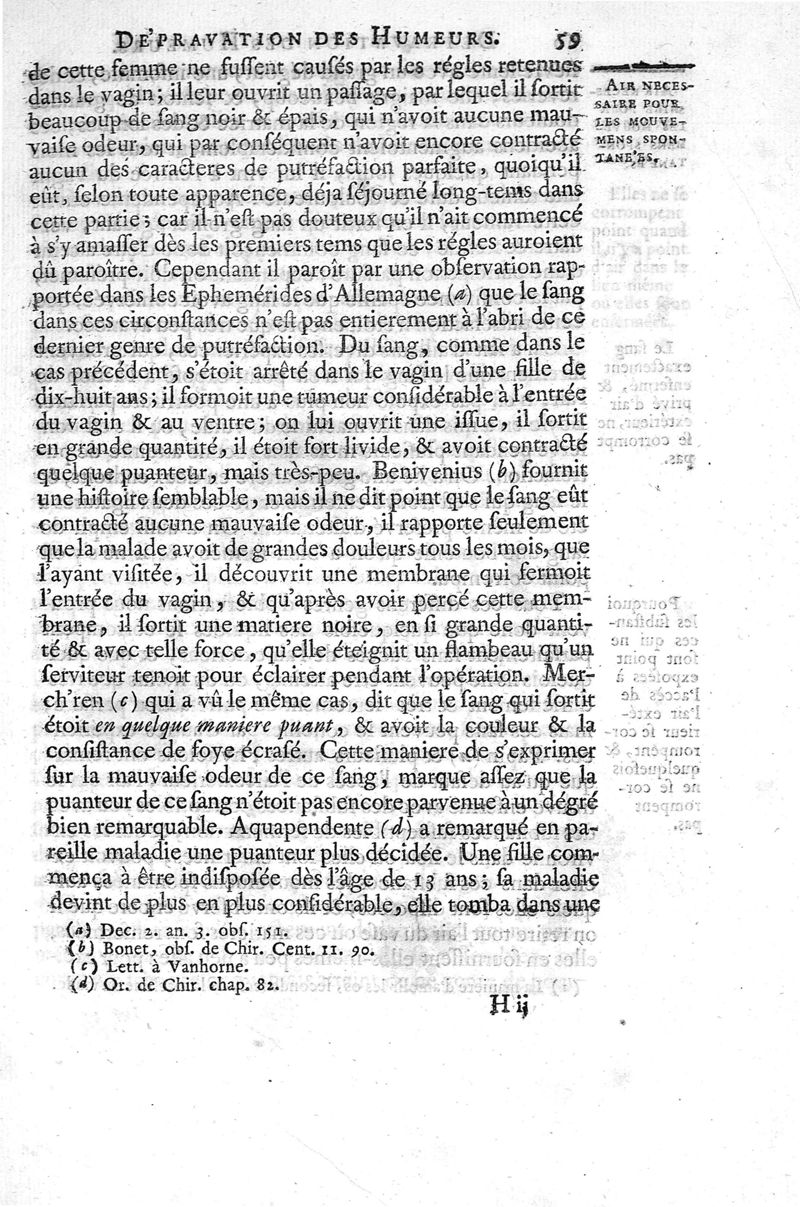 DE'PRAVATION DES HUMEURS. 59
AIR NECES-
SAIRE POUR
LES MOUVE-
MENS SPON-
TANE'ES.
de cette femme ne fuſſent cauſés par les régles retenues
dans le vagin; il leur ouvrit un paſſage, par lequel il ſortit
beaucoup de ſang noir & épais, qui n'avoit aucune mau-
vaiſe odeur, qui par conſéquent n'avoit encore contracté
aucun des caracteres de putréfaction parfaite, quoiqu'il
eût, ſelon toute apparence, déja ſéjourné long-tems dans
cette partie; car il n'eſt pas douteux qu'il n'ait commencé
à s'y amaſſer dès les premiers tems que les régles auroient
dû paroître. Cependant il paroît par une obſervation rap-
portée dans les Ephemérides d'Allemagne (a) que le ſang
dans ces circonſtances n'eſt pas entierement à l'abri de ce
dernier genre de putréfaction. Du ſang, comme dans le
cas précédent, s'étoit arrêté dans le vagin d'une fille de
dix-huit ans; il formoit une tumeur conſidérable à l'entrée
du vagin & au ventre; on lui ouvrit une iſſue, il ſortit
en grande quantité, il étoit fort livide, & avoit contracté
quelque puanteur, mais très-peu. Benivenius (b) fournit
une hiſtoire ſemblable, mais il ne dit point que le ſang eût
contracté aucune mauvaiſe odeur, il rapporte ſeulement
que la malade avoit de grandes douleurs tous les mois, que
l'ayant viſitée, il découvrit une membrane qui fermoit
l'entrée du vagin, & qu'après avoir percé cette mem-
brane, il ſortit une matiere noire, en ſi grande quanti-
té & avec telle force, qu'elle éteignit un flambeau qu'un
ſerviteur tenoit pour éclairer pendant l'opération. Mer-
ch'ren (c) qui a vû le même cas, dit que le ſang qui ſortit
étoit en quelque maniere puant, & avoit la couleur & la
conſiſtance de foye écraſé. Cette maniere de s'exprimer
ſur la mauvaiſe odeur de ce ſang, marque aſſez que la
puanteur de ce ſang n'étoit pas encore parvenue à un dégré
bien remarquable. Aquapendente (d) a remarqué en pa-
reille maladie une puanteur plus décidée. Une fille com-
mença à être indiſpoſée dès l'âge de 13 ans; ſa maladie
devint de plus en plus conſidérable, elle tomba dans une
(a) Dec. 2. an. 3. obſ. 151.
(b) Bonet, obſ. de Chir. Cent. 11. 90.
(c) Lett. à Vanhorne.
(d) Or. de Chir. chap. 82.
H ij